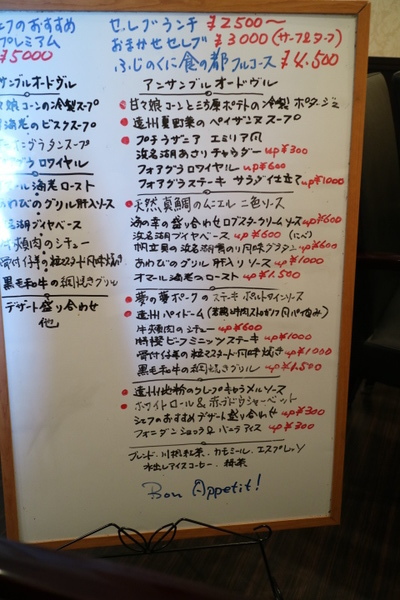 シェフのおすすめ
プレミアム
¥5000
セレブランチ ¥2500〜
おまかせセレブ ¥3000(サーフ&ターフ)
ふじのくに食の都フルコース ¥4.500
アンサンブルオードヴル
コーンの冷製スープ
海老のビスクスープ
フォアグラロワイヤル
海老ロースト
あわびのグリル肝入ソース
ブイヤベース
頬肉のシチュー
骨付仔羊の粒マスタード風味焼き
黒毛和牛の網焼きグリル
デザート盛り合わせ
他
アンサンブルオードヴル
甘々娘コーンと三方原ポテトの冷製ポタージュ
遠州夏野菜のペイザンヌスープ
プチラザニア エミリア風
浜名湖あさりチャウダー up¥300
フォアグラロワイヤル up¥600
フォアグラステーキ サラダ仕立て up¥1000
天然真鯛のムニエル 二色ソース
海の幸の盛り合わせロブスタークリームソース up¥600
浜名湖ブイヤベース up¥600
帆立貝の浜名湖青のり風味グラタン up¥600
あわびのグリル肝入りソース up¥1000
オマール海老のロースト up¥1.500
夢の夢ポークのステーキ ポルトワインソース
遠州パイドーム
牛頬肉のシチュー up¥600
特撰ビーフミンツステーキ up¥1000
骨付仔羊の粒マスタード風味焼き up¥1000
黒毛和牛の網焼きグリル up¥1.500
遠州地粉のクレープキャラメルソース
ホワイトロール&赤ブドウシャーベット
シェフのおすすめデザート盛り合わせ up¥300
フォンダンショコラ&バニラアイス up¥300
ブレンド、川根紅茶、カモミール、エスプレッソ
水出しアイスコーヒー、抹茶
Bon Appetit!